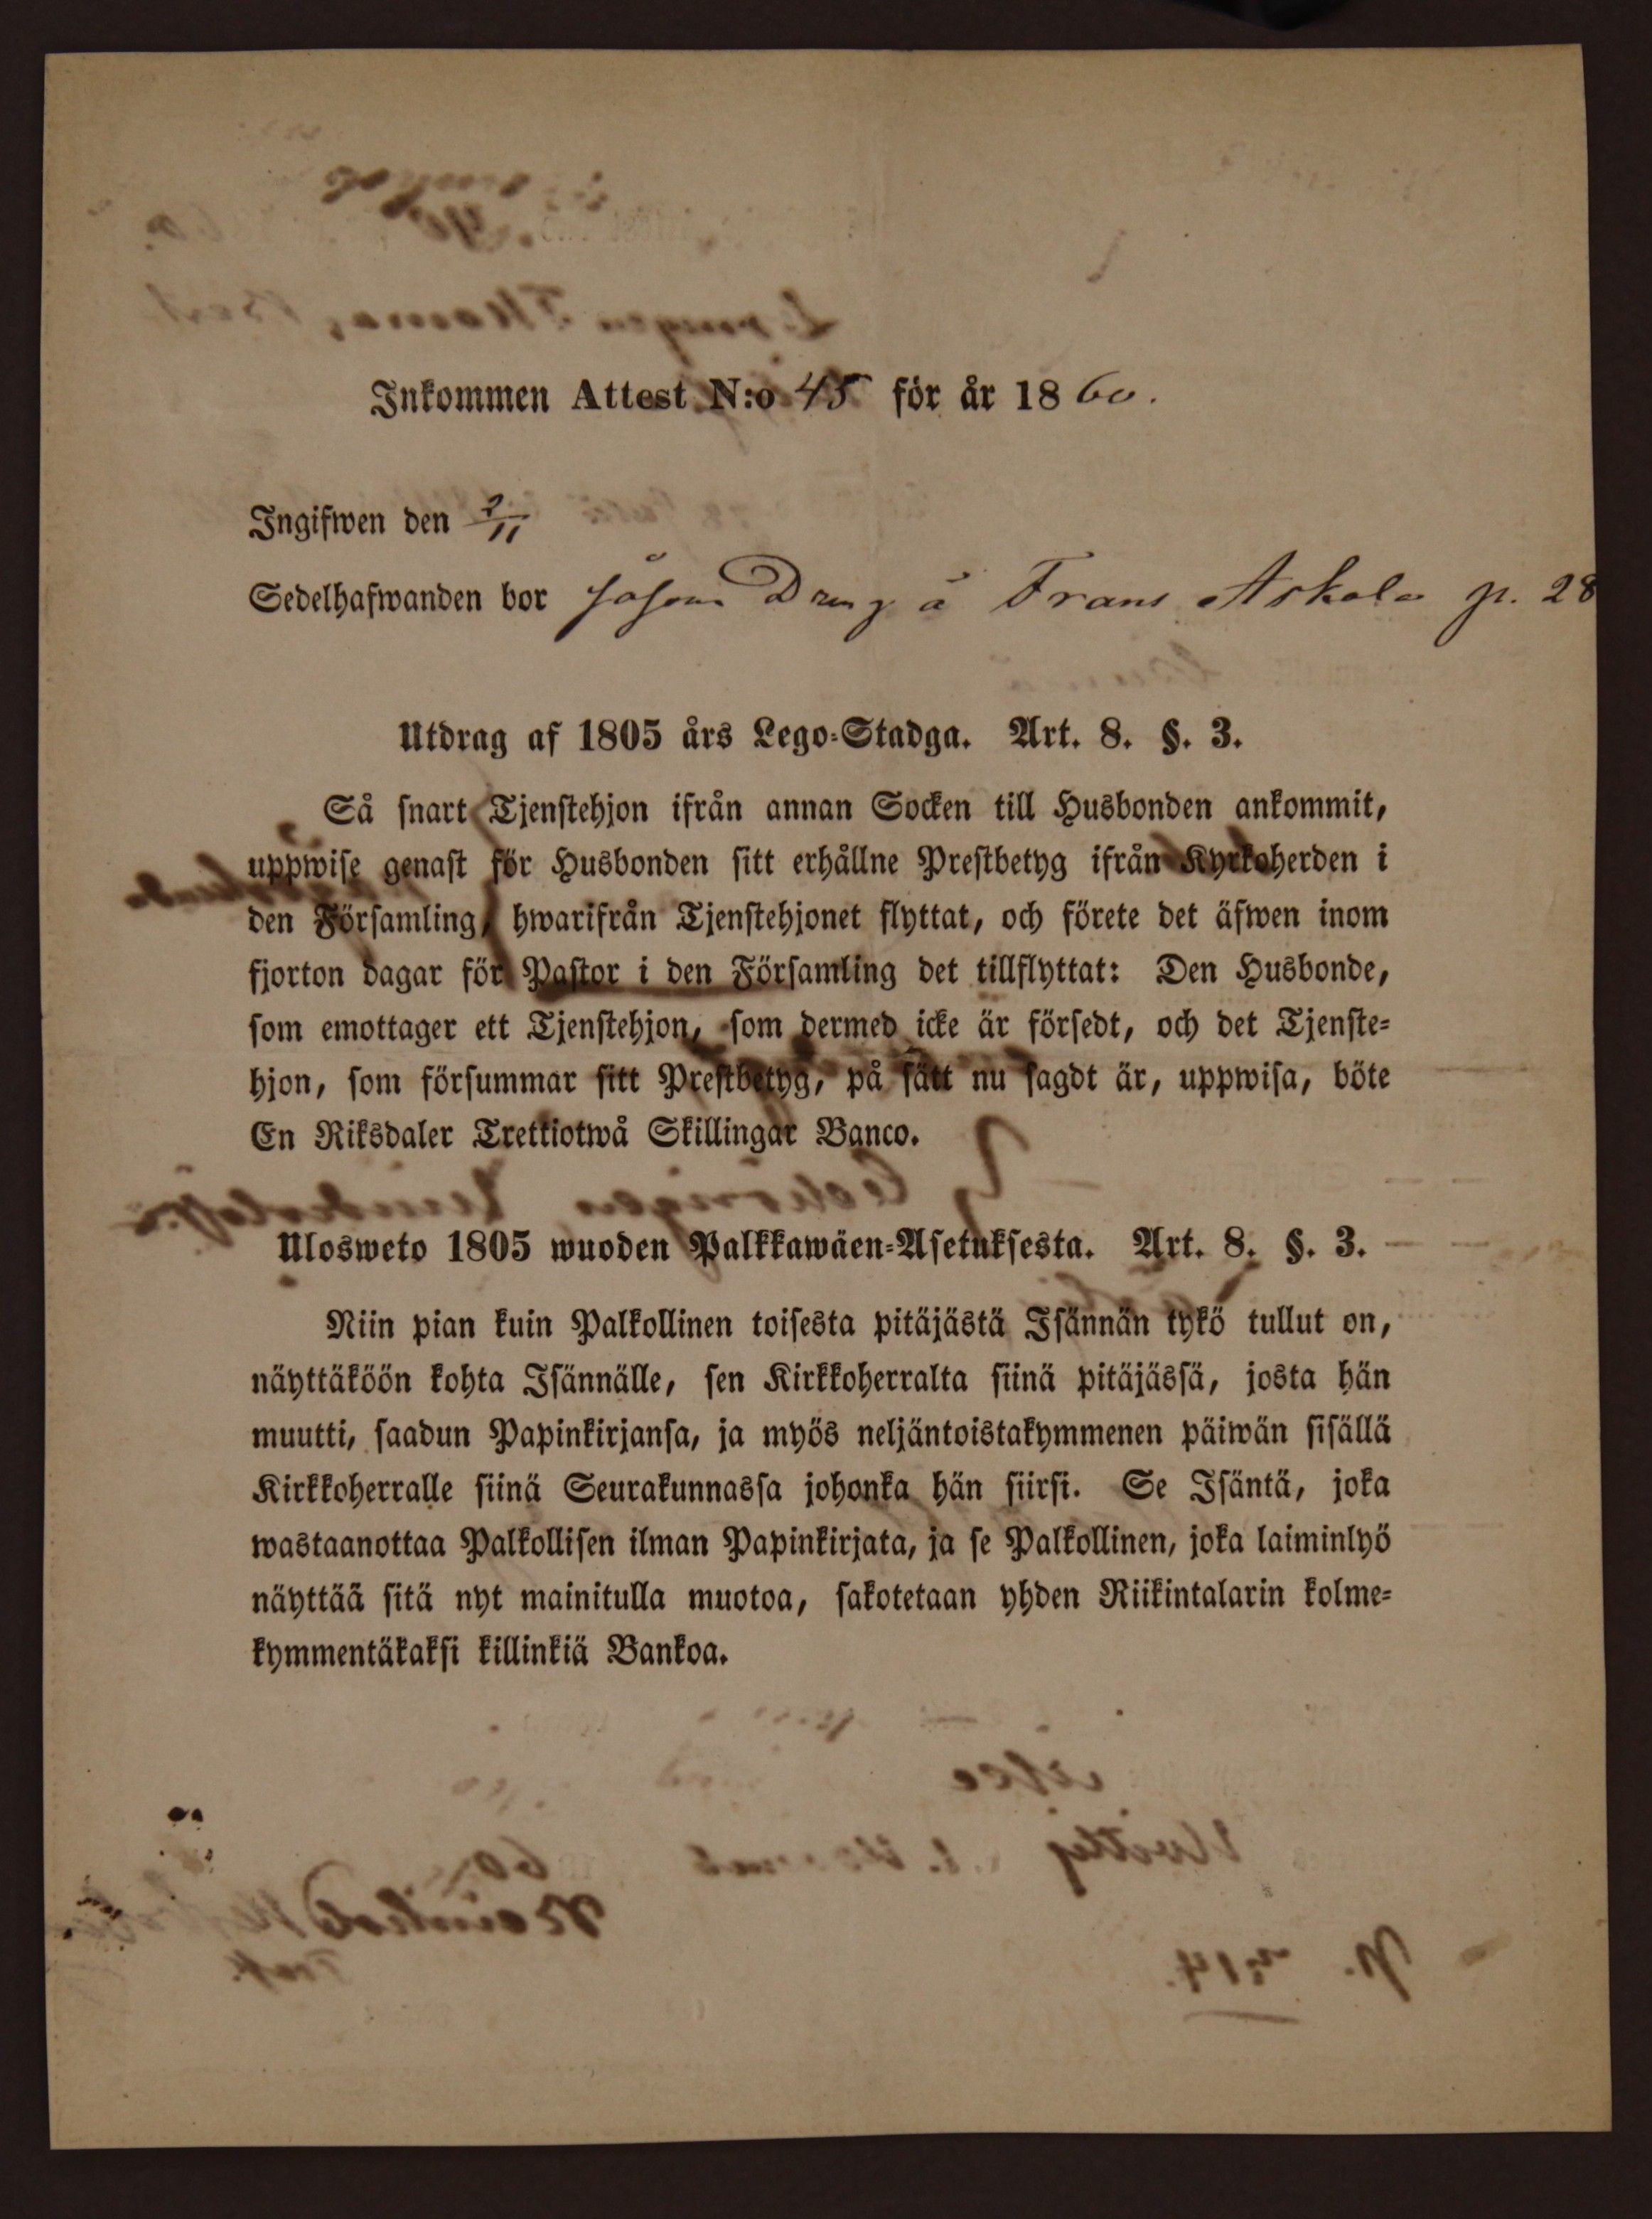 Inkommen Attest N:o 45 för år 1860.
Ingifwen den 2/11
Sedelhafwanden bor såsom Dreng å Frans Askola p. 28
Utdrag af 1805 års Lego-Stadga. Art. 8. §. 3.
Så snart Tjenstehjon ifrån annan Socken till Husbonden ankommit,
uppwise genast för Husbonden sitt erhållne Prestbetyg ifrån Kyrkoherden i
den Församling, hwarifrån Tjenstehjonet flyttat, och förete det äfwen inom
fjorton dagar för Pastor i den Församling det tillflyttat: Den Husbonde,
som emottager ett Tjenstehjon, som dermed icke är försedt, och det Tjenste-
hjon, som försummar sitt Prestbetyg, på sätt nu sagdt är, uppwisa, böte
En Riksdaler Trettiotwå Skillingar Banco.
Ulosweto 1805 wuoden Palkkawäen-Asetuksesta. Art. 8. §. 3.
Niin pian kuin Palkollinen toisesta pitäjästä Isännän tykö tullut on,
näyttäköön kohta Isännälle, sen Kirkkoherralta siinä pitäjässä, josta hän
muutti, saadun Papinkirjansa, ja myös neljäntoistakymmenen päiwän sisällä
Kirkkoherralle siinä Seurakunnassa johonka hän siirsi. Se Isäntä, joka
wastaanottaa Palkollisen ilman Papinkirjata, ja se Palkollinen, joka laiminlyö
näyttää sitä nyt mainitulla muotoa, sakotetaan yhden Riikintalarin kolme-
kymmentäkaksi killinkiä Bankoa.